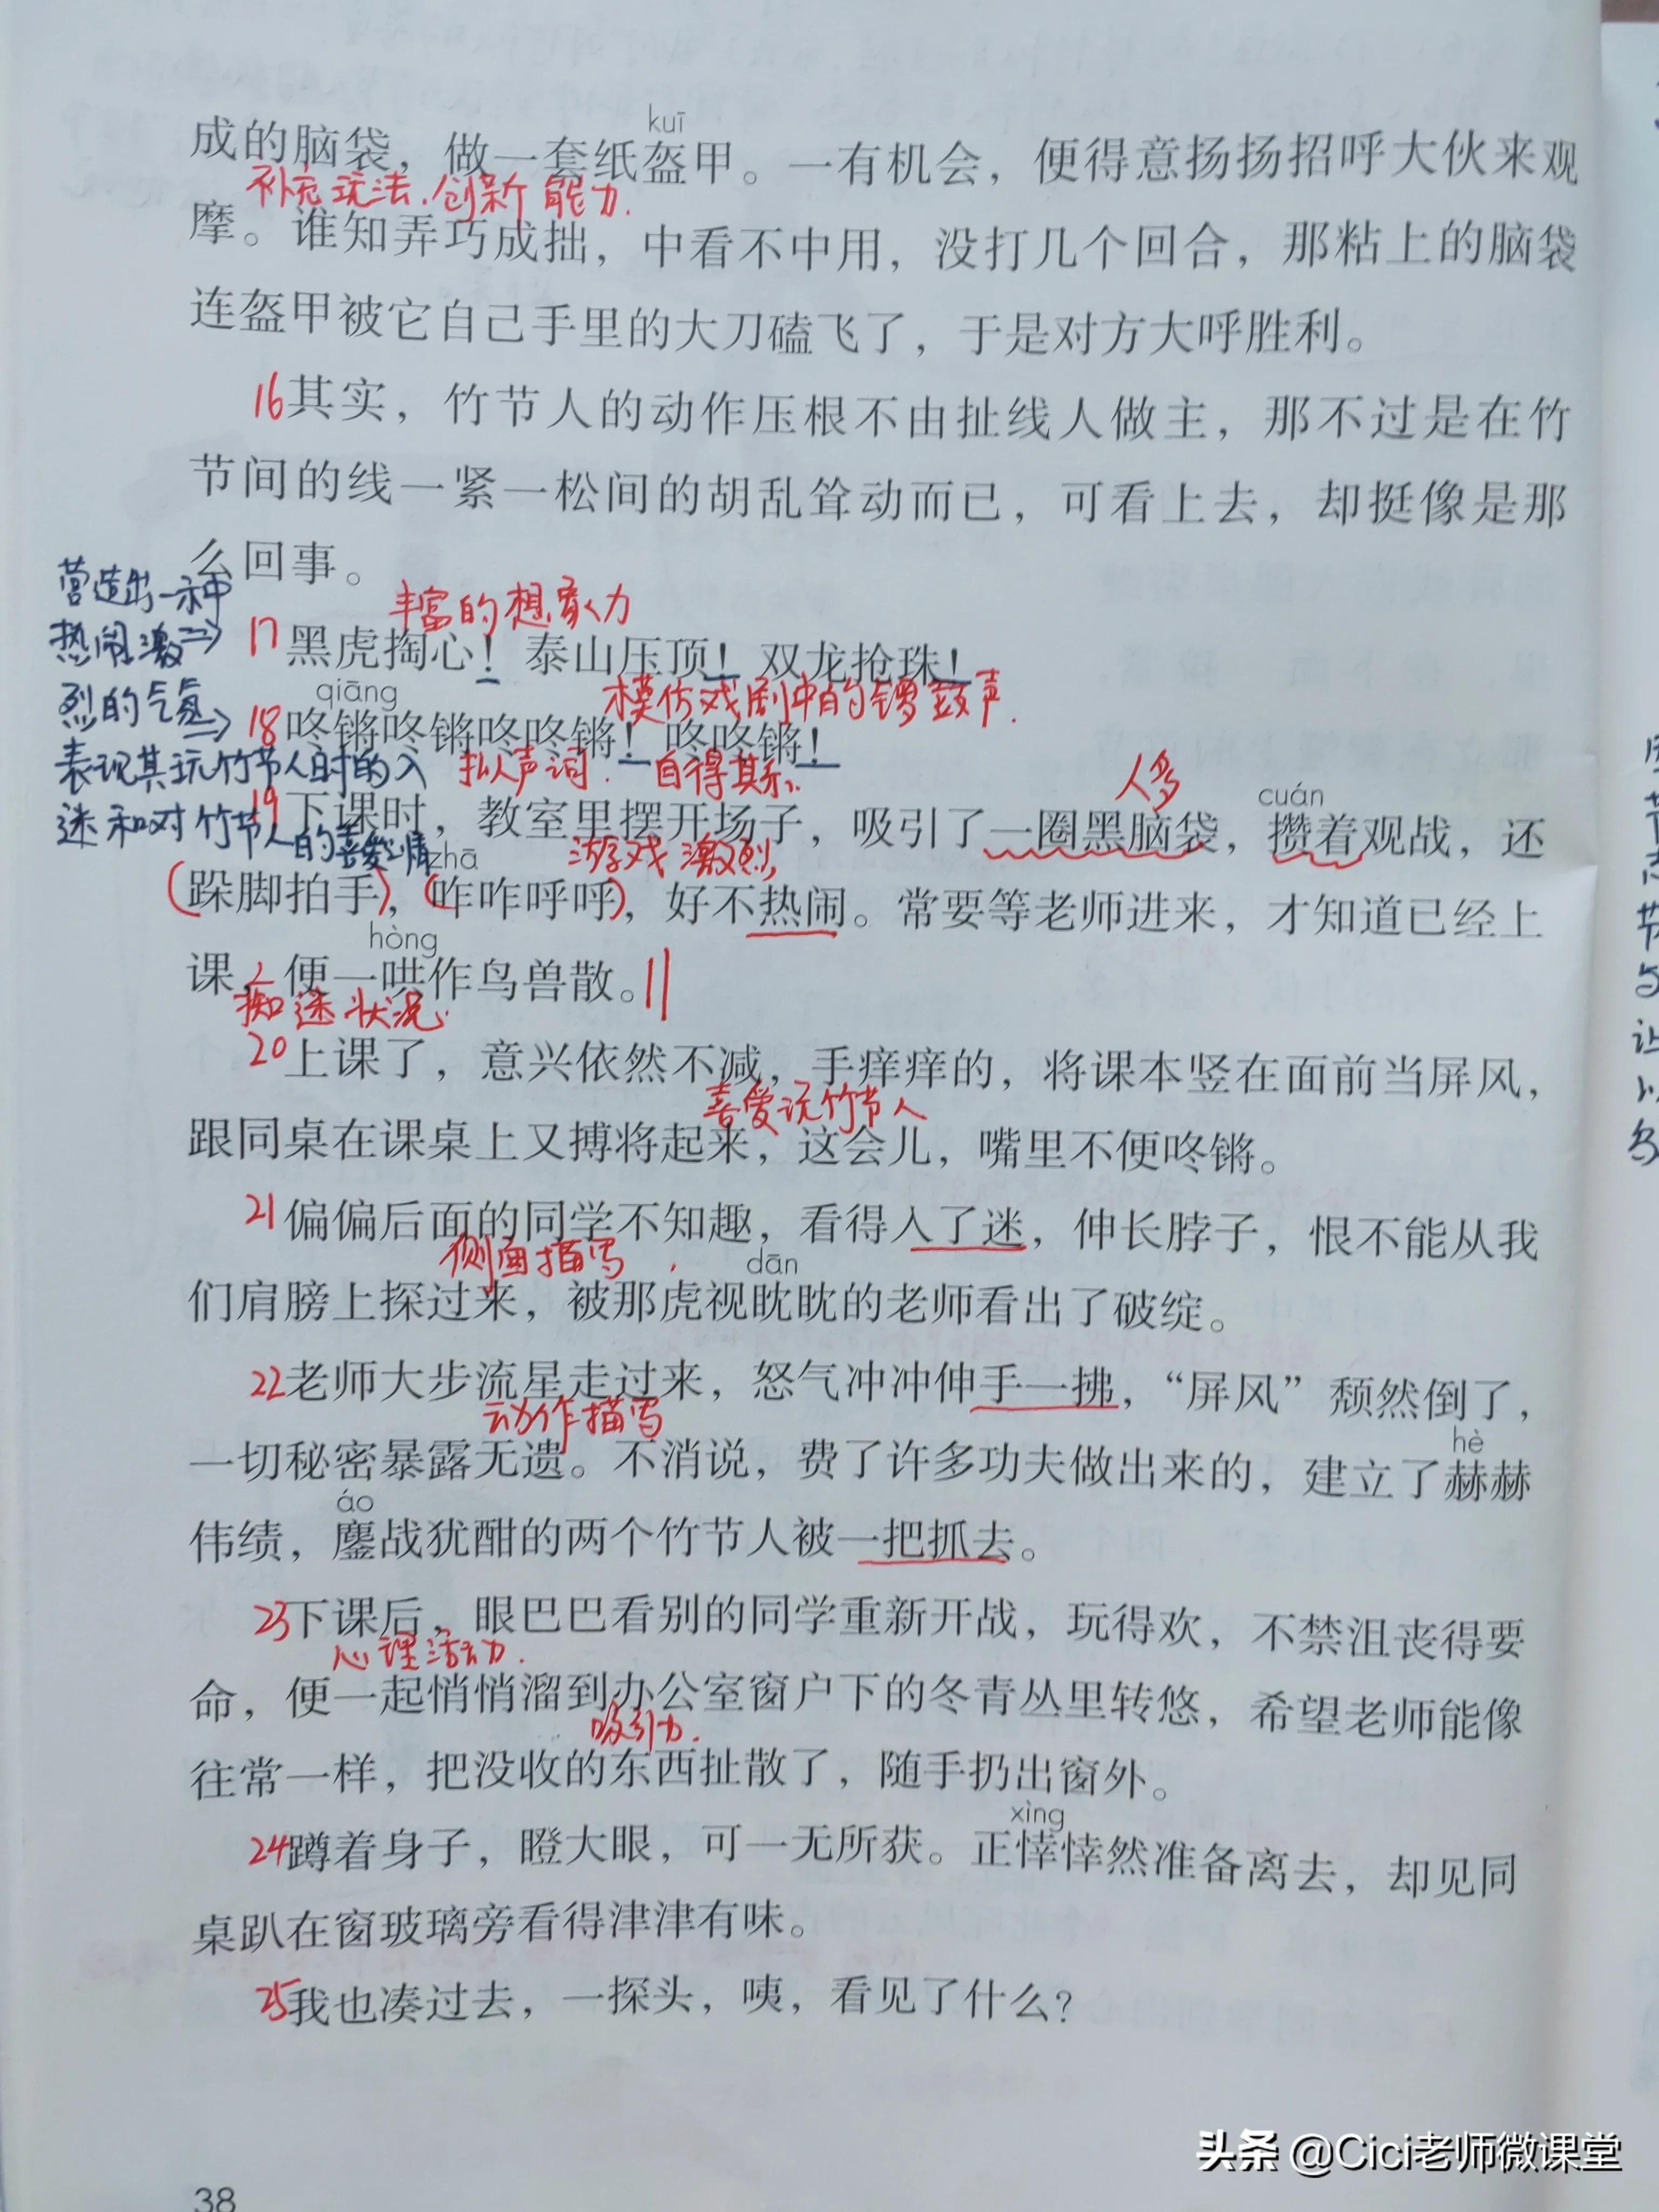 kuī
成的脑袋，做一套纸盔甲。一有机会，便得意扬扬招呼大伙来观
补充玩法.创新能力.
摩。谁知弄巧成拙，中看不中用，没打几个回合，那粘上的脑袋
连盔甲被它自己手里的大刀磕飞了，于是对方大呼胜利。
16其实，竹节人的动作压根不由扯线人做主，那不过是在竹
节间的线一紧一松间的胡乱耸动而已，可看上去，却挺像是那
么回事。
营造出一种
热闹激
烈的气氛
表现其玩竹节人时的入
迷和对竹节人的喜爱之情
丰富的想象力
17黑虎掏心！泰山压顶！双龙抢珠！
qiāng
模仿戏剧中的锣鼓声.
18咚锵咚锵咚咚锵！咚咚锵！
拟声词. 自得其乐.
人多
cuán
19下课时，教室里摆开场子，吸引了一圈黑脑袋，攒着观战，还
zhā
游戏激烈
(跺脚拍手)，(咋咋呼呼)，好不热闹。常要等老师进来，才知道已经上
hòng
课，便一哄作鸟兽散。
痴迷状况.
20上课了，意兴依然不减，手痒痒的，将课本竖在面前当屏风，
喜爱玩竹节人
跟同桌在课桌上又搏将起来，这会儿，嘴里不便咚锵。
21偏偏后面的同学不知趣，看得入了迷，伸长脖子，恨不能从我
侧面描写
dān
们肩膀上探过来，被那虎视眈眈的老师看出了破绽。
22老师大步流星走过来，怒气冲冲伸手一拂，“屏风”颓然倒了，
动作描写
hè
一切秘密暴露无遗。不消说，费了许多功夫做出来的，建立了赫赫
áo
伟绩，鏖战犹酣的两个竹节人被一把抓去。
23下课后，眼巴巴看别的同学重新开战，玩得欢，不禁沮丧得要
心理活动.
命，便一起悄悄溜到办公室窗户下的冬青丛里转悠，希望老师能像
吸引力.
往常一样，把没收的东西扯散了，随手扔出窗外。
xìng
24蹲着身子，瞪大眼，可一无所获。正悻悻然准备离去，却见同
桌趴在窗玻璃旁看得津津有味。
25我也凑过去，一探头，咦，看见了什么？
38
头条 @Cici老师微课堂